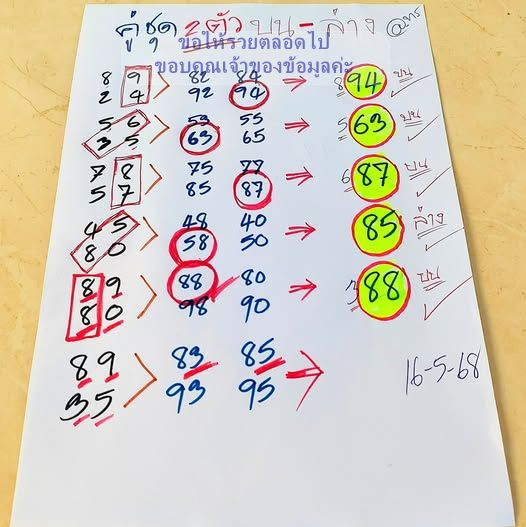 คู่ชุด 2ตัว บน - ล่าง
ขอให้รวยตลอดไป
ขอบคุณเจ้าของข้อมูลค่ะ
8 9 82 84 8 94 บน
2 4 92 94
5 6 53 55 5 63 บน
3 5 63 65
7 8 75 77 6 87 บน
5 7 85 87
4 5 48 40 85 ล่าง
8 0 58 50
8 9 88 80 3 88 บน
8 0 98 90
8 9 83 85 16-5-68
3 5 93 95